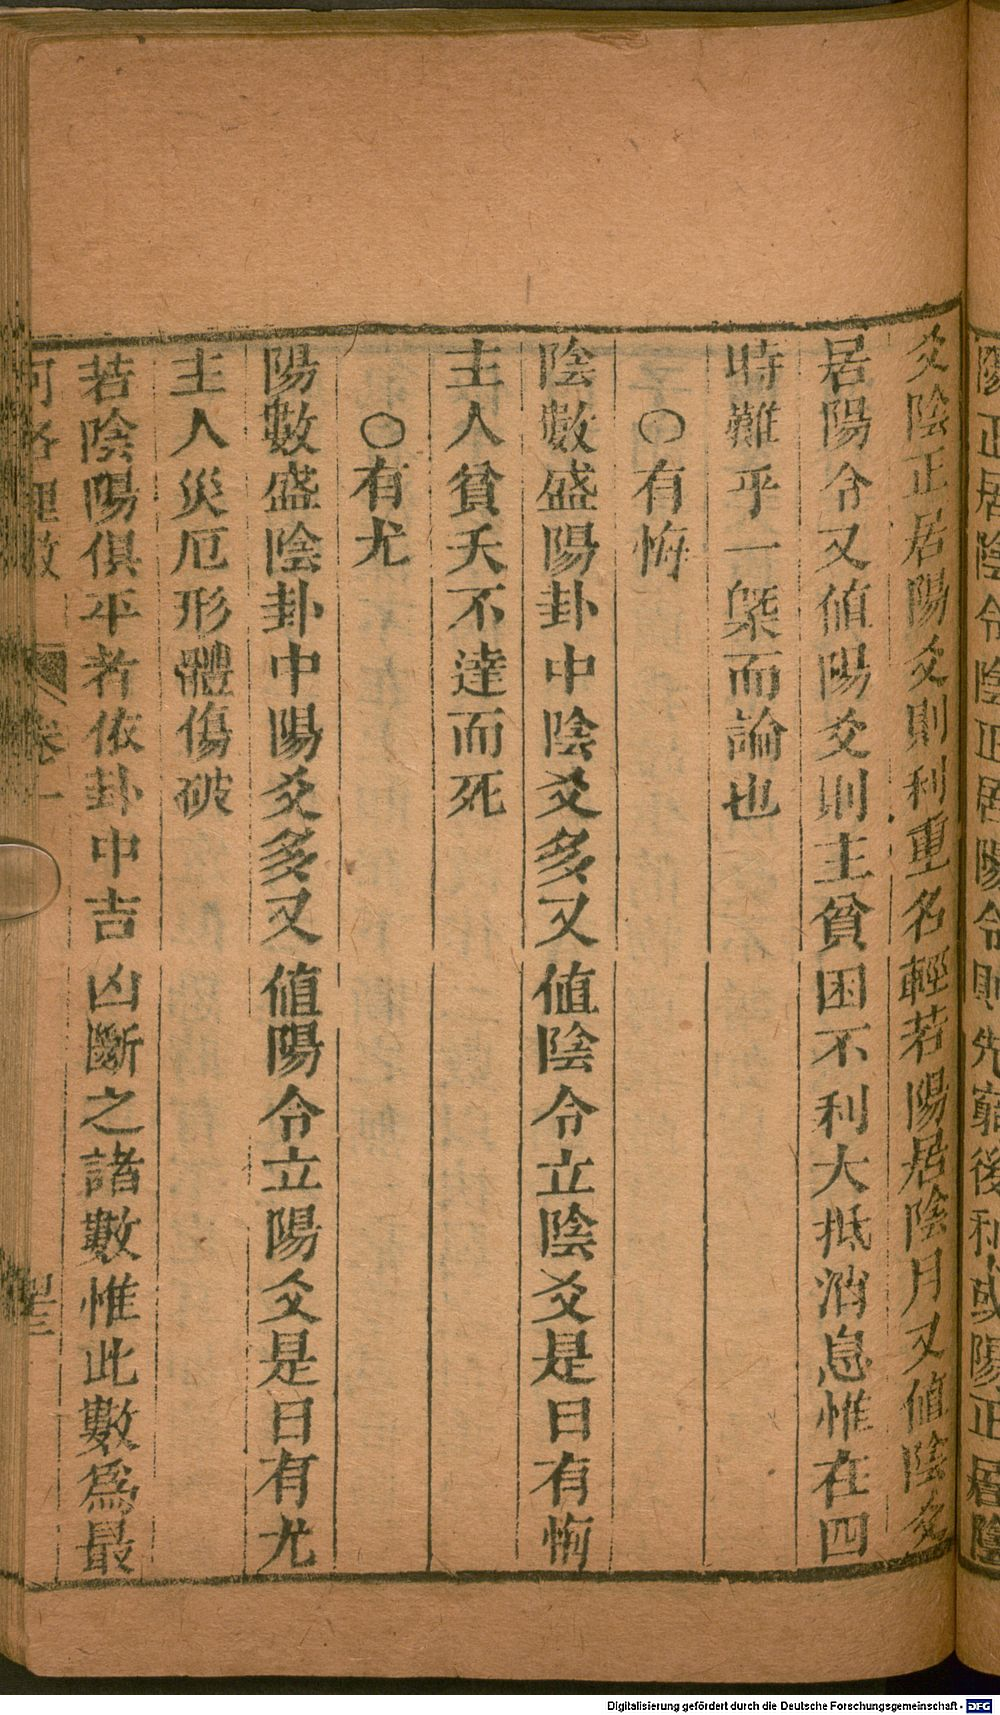 陽正居陰令陰正居陽令則先窮後利或陽正居陰
爻陰正居陽爻則利重名輕若陽居陰月又値陰爻
居陽令又値陽爻則主貧困不利大抵消息惟在四
時難乎一槩而論也
○有悔
陰數盛陽卦中陰爻多又値陰令立陰爻是曰有悔
主人貧夭不達而死
○有尤
陽數盛陰卦中陽爻多又値陽令立陽爻是曰有尤
主人災厄形體傷破
若陰陽俱平者依卦中吉凶斷之諸數惟此數爲最
河洛理數 卷一
Digitalisierung gefördert durch die Deutsche Forschungsgemeinschaft - DFG